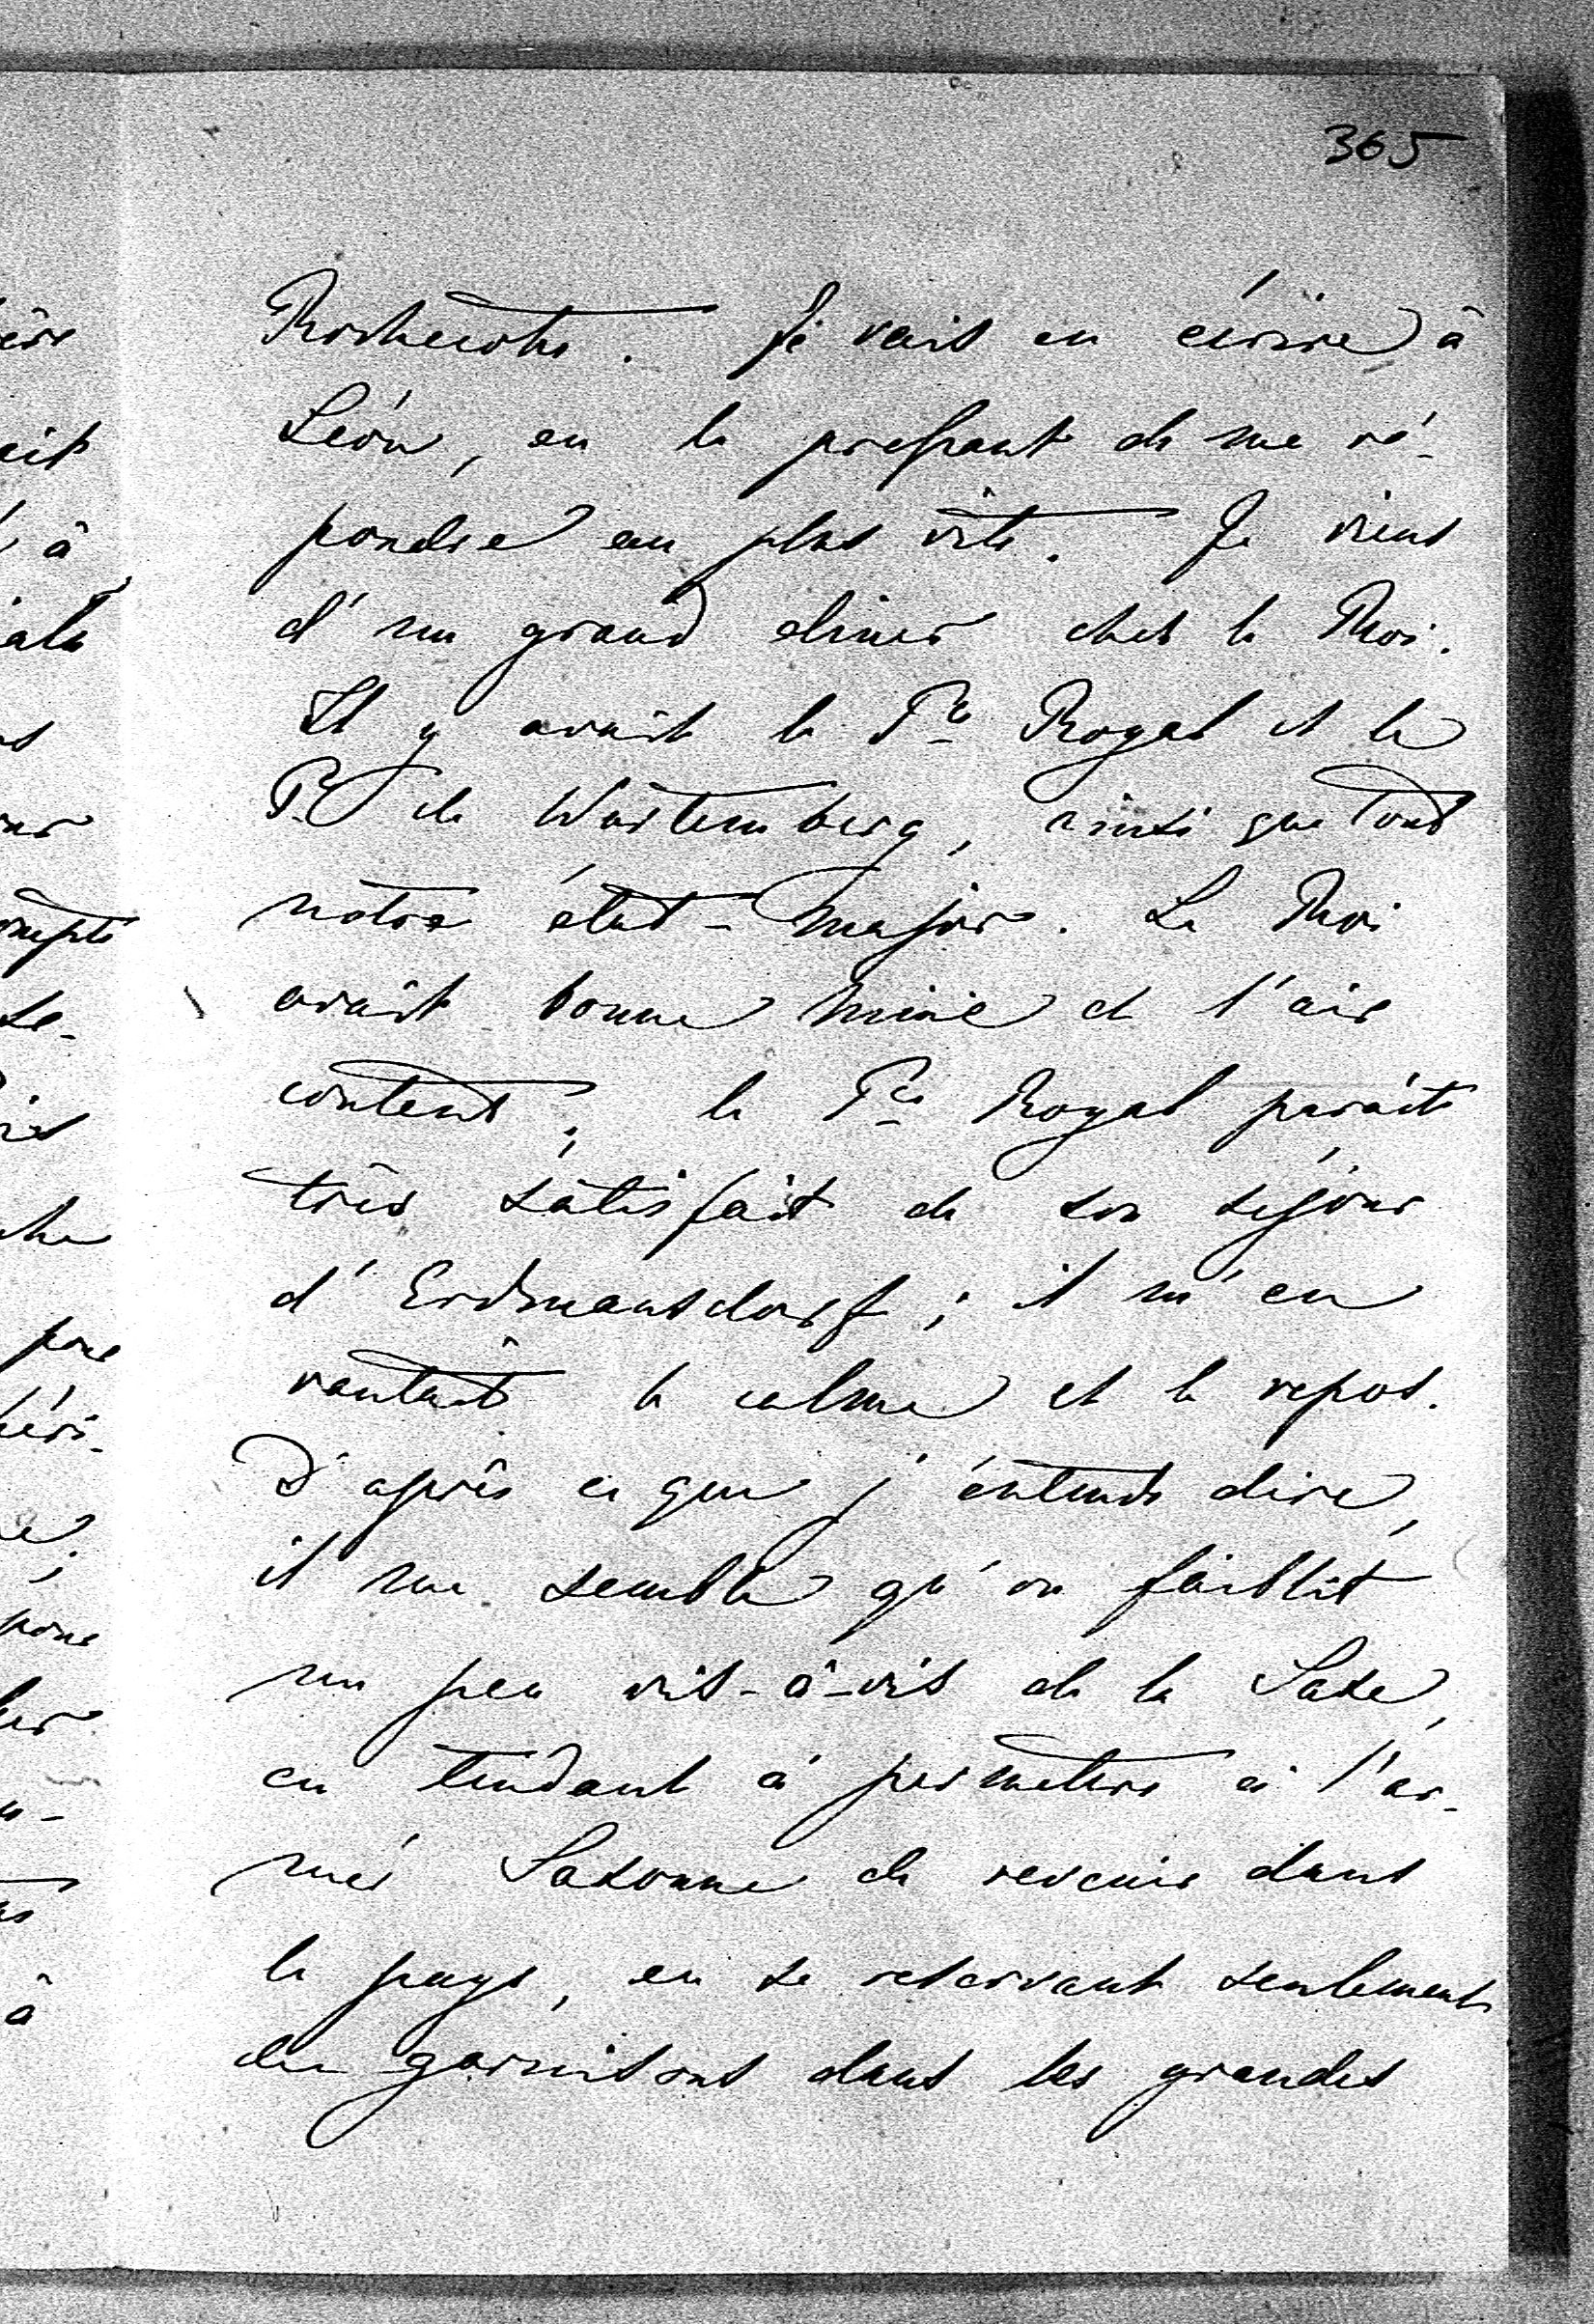 365
ère
à
pour
à
Rochecotte. Je vais en écrire à
Léon, en le pressant de me ré-
pondre au plus vîte. Je viens
d'un grand diner chez le Roi.
Il y avait le Pce Royal et le
Pce de Würtemberg, ainsi que tout
notre état-major. Le Roi
avait bonne mine et l'air
content; le Pce Royal paraît
très satisfait de son séjour
d'Erdmansdorf; il m'en
vantait le calme et le repos.
D'après ce que j'entends dire,
il me semble qu'on faiblit
un peu vis-à-vis de la Saxe,
en tendant à permettre à l'ar-
mée Saxonne de revenir dans
le pays, en se réservant seulement
des garnisons dans les grandes